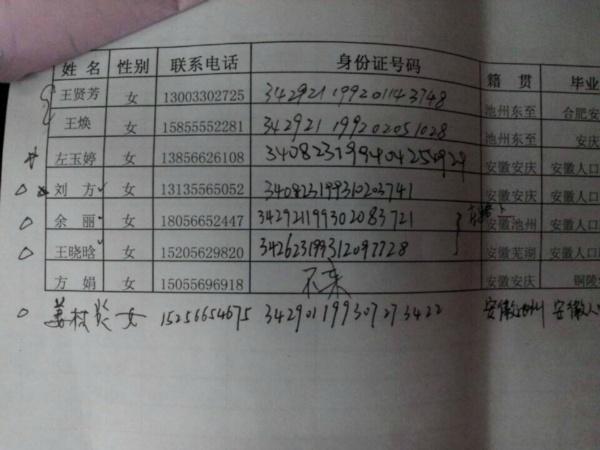 姓 名 性别 联系电话 身份证号码 籍 贯 毕业
王贤芳 女 13003302725 342921199201143748 池州东至 合肥安
王焕 女 15855552281 342921199202051028 池州东至 安庆
左玉婷 女 13856626108 安徽安庆 安徽人口
刘 方 女 13135565052 340823199310203741 安徽安庆 安徽人口
余 丽 女 18056652447 342921199302083721 安徽池州 安徽人口
王晓晗 女 15205629820 342623199312097728 安徽芜湖 安徽人口
方 娟 女 15055696918 不来 安徽安庆 铜陵
姜 女 15256654675 342901199307273422 安徽池州 安徽人